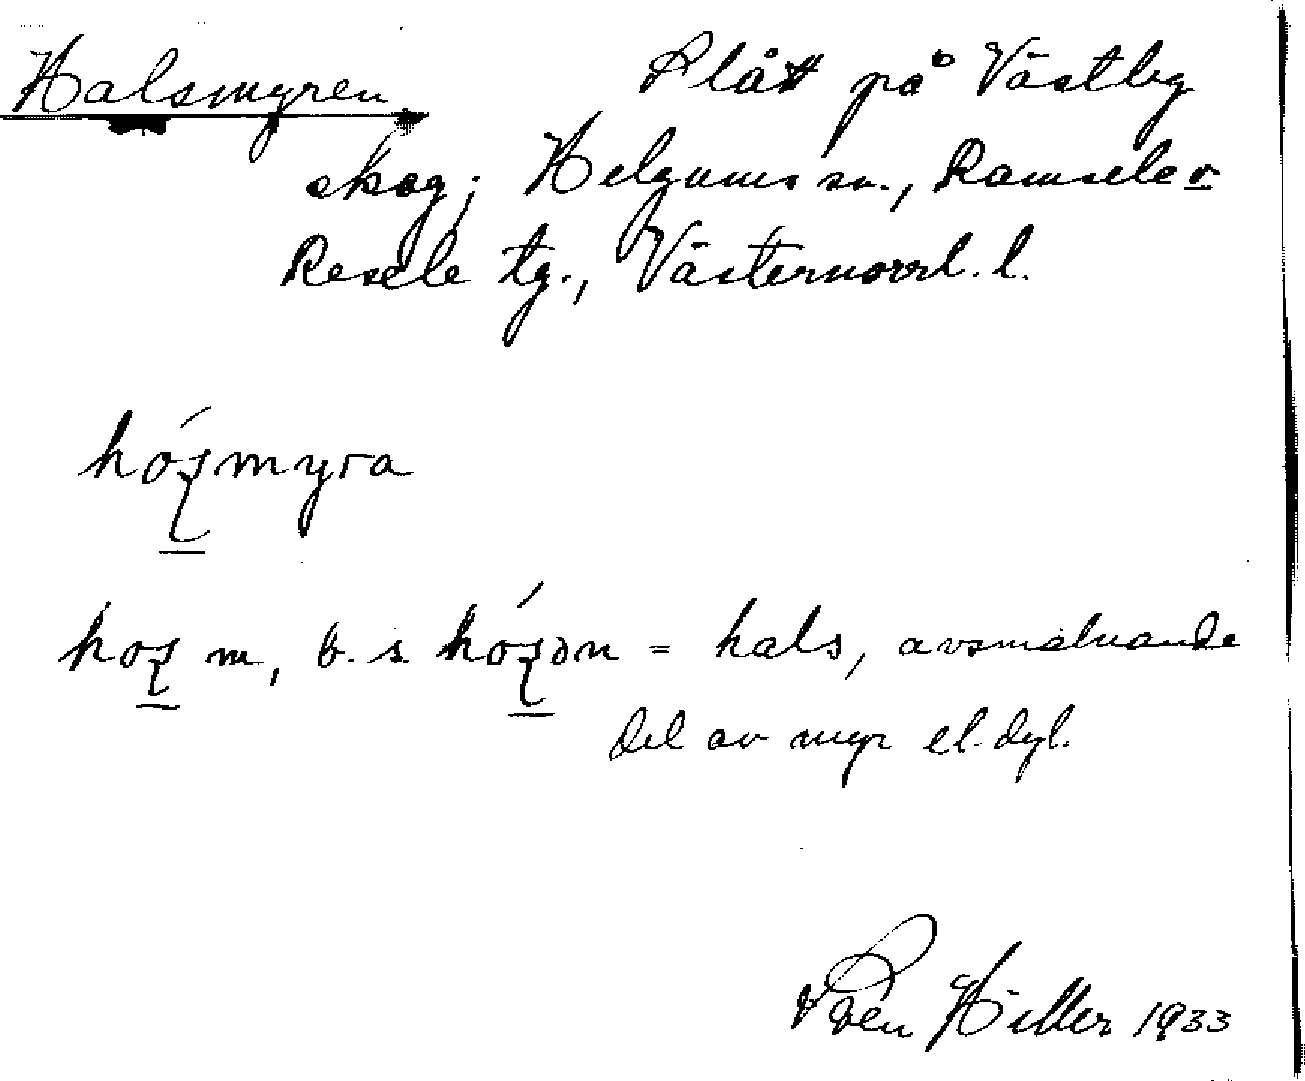 Halsmyren Slått på Västby
skog; Helgums sn., Ramsele o.
Resele tg., Västernorrl. l.
myra
m, b. s. = hals, avsmalnande
del av myr el. dyl.
Sven Hiller 1933